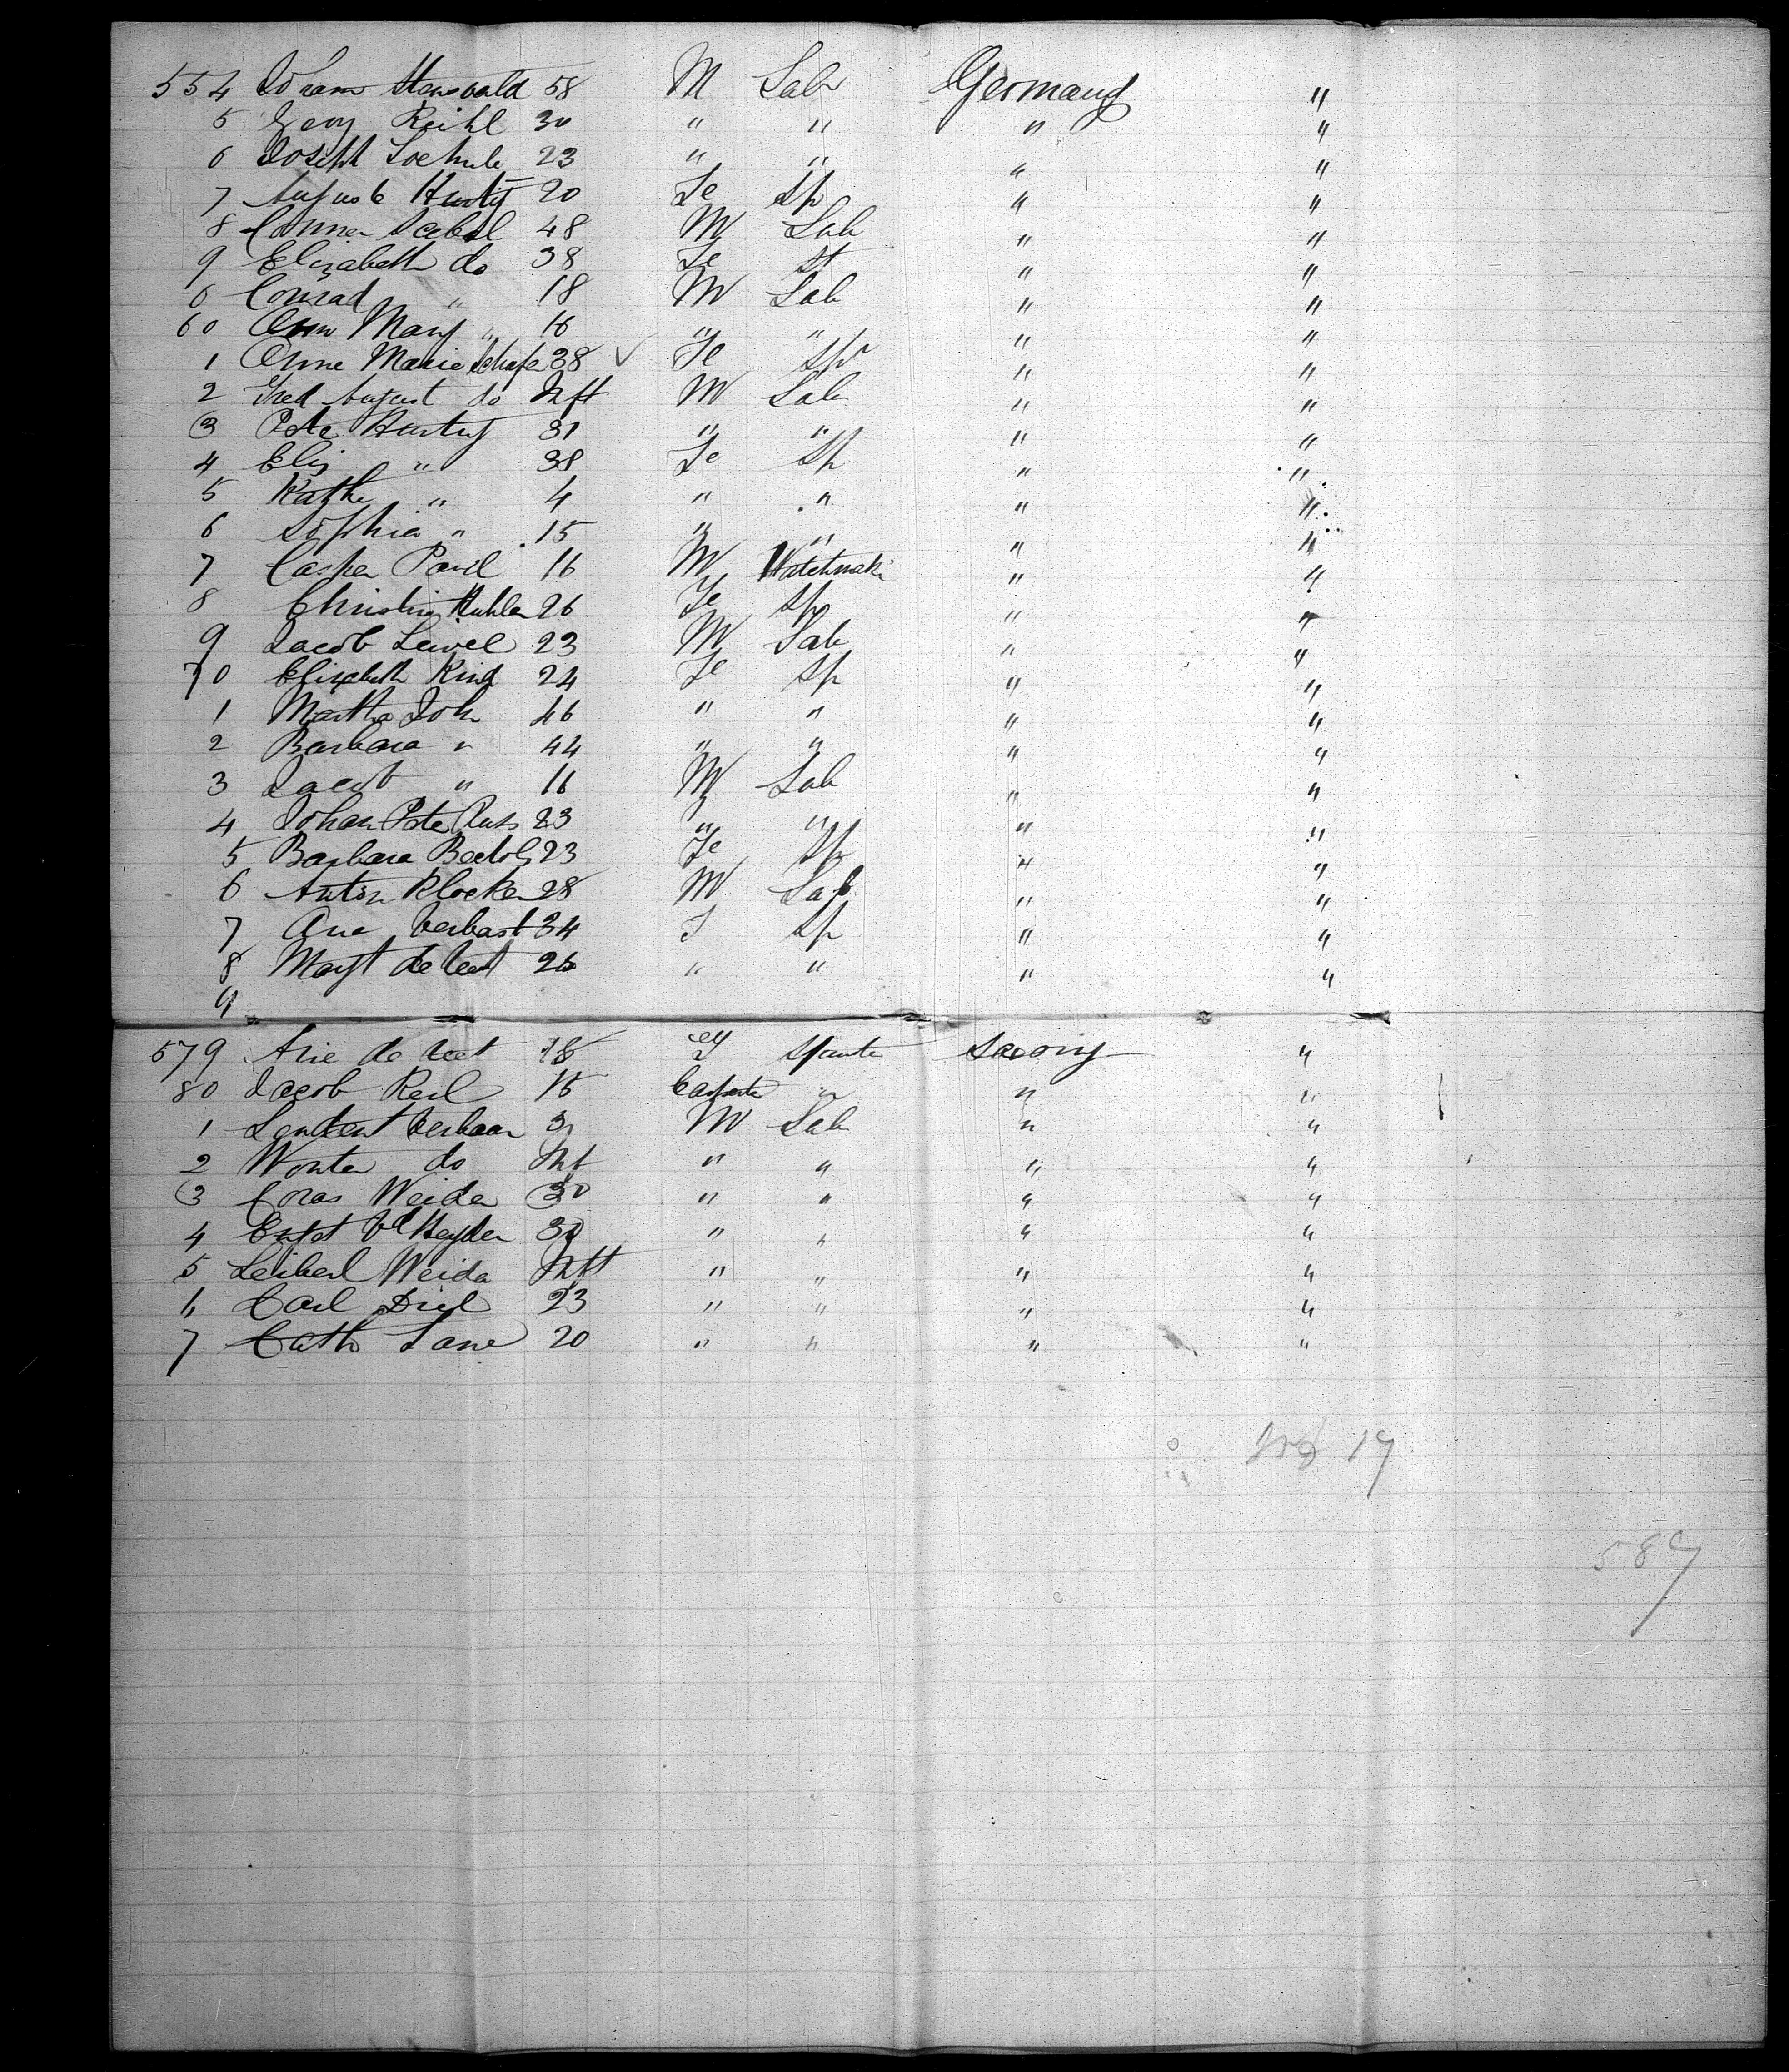 554 Johann Hausvald 58 M Lab Germany "
5 Georg Reihl 30 " " " "
6 Joseph Loehule 23 " " " "
7 August Hurtig 20 Fe Sp " "
8 Conner Sabel 48 M Lab " "
9 Elizabeth do 38 Fe St " "
0 Conrad " 18 M Lab " "
60 Ann Mary " 16 " " " "
1 Anne Marie Schafe 38 ✓ Fe Spr " "
2 Fred August do Inft M Lab " "
3 Pete Hurtig 31 " " " "
4 Elis " 38 Fe Sp " "
5 Kathe " 4 " " " "
6 Sophia " 15 " " " "
7 Casper Paul 16 M Watchmak " "
8 Christin Kuhler 26 Fe Sp " "
9 Jacob Lewel 23 M Lab " "
70 Elizabeth Kind 24 Fe Sp " "
1 Martha Joh 46 " " " "
2 Barbara " 44 " " " "
3 Jacob " 16 M Lab " "
4 Johan Pete Russ 23 " " " "
5 Barbara Bectols 23 Fe Sp " "
6 Anton Klocken 28 M Lab " "
7 Ane Verbast 34 F Sp " "
8 Mayt de Veet 26 " " " "
9
579 Arie de Veet 18 F Spinste Saxony "
80 Jacob Reil 16 Carpente " " "
1 Lendert Verbaan 3 M Lab " "
2 Wouter do Inf " " " "
3 Coras Weider 30 " " " "
4 Vd Heyden 30 " " " "
5 Leiberl Weida Inft " " " "
6 Carl Diel 23 " " " "
7 Cath Lane 20 " " " "
19
587